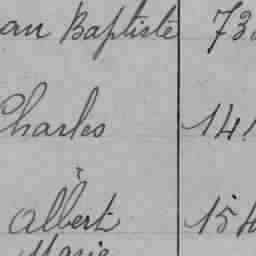 an Baptiste 73
Charles 141
Albert 154
Marie